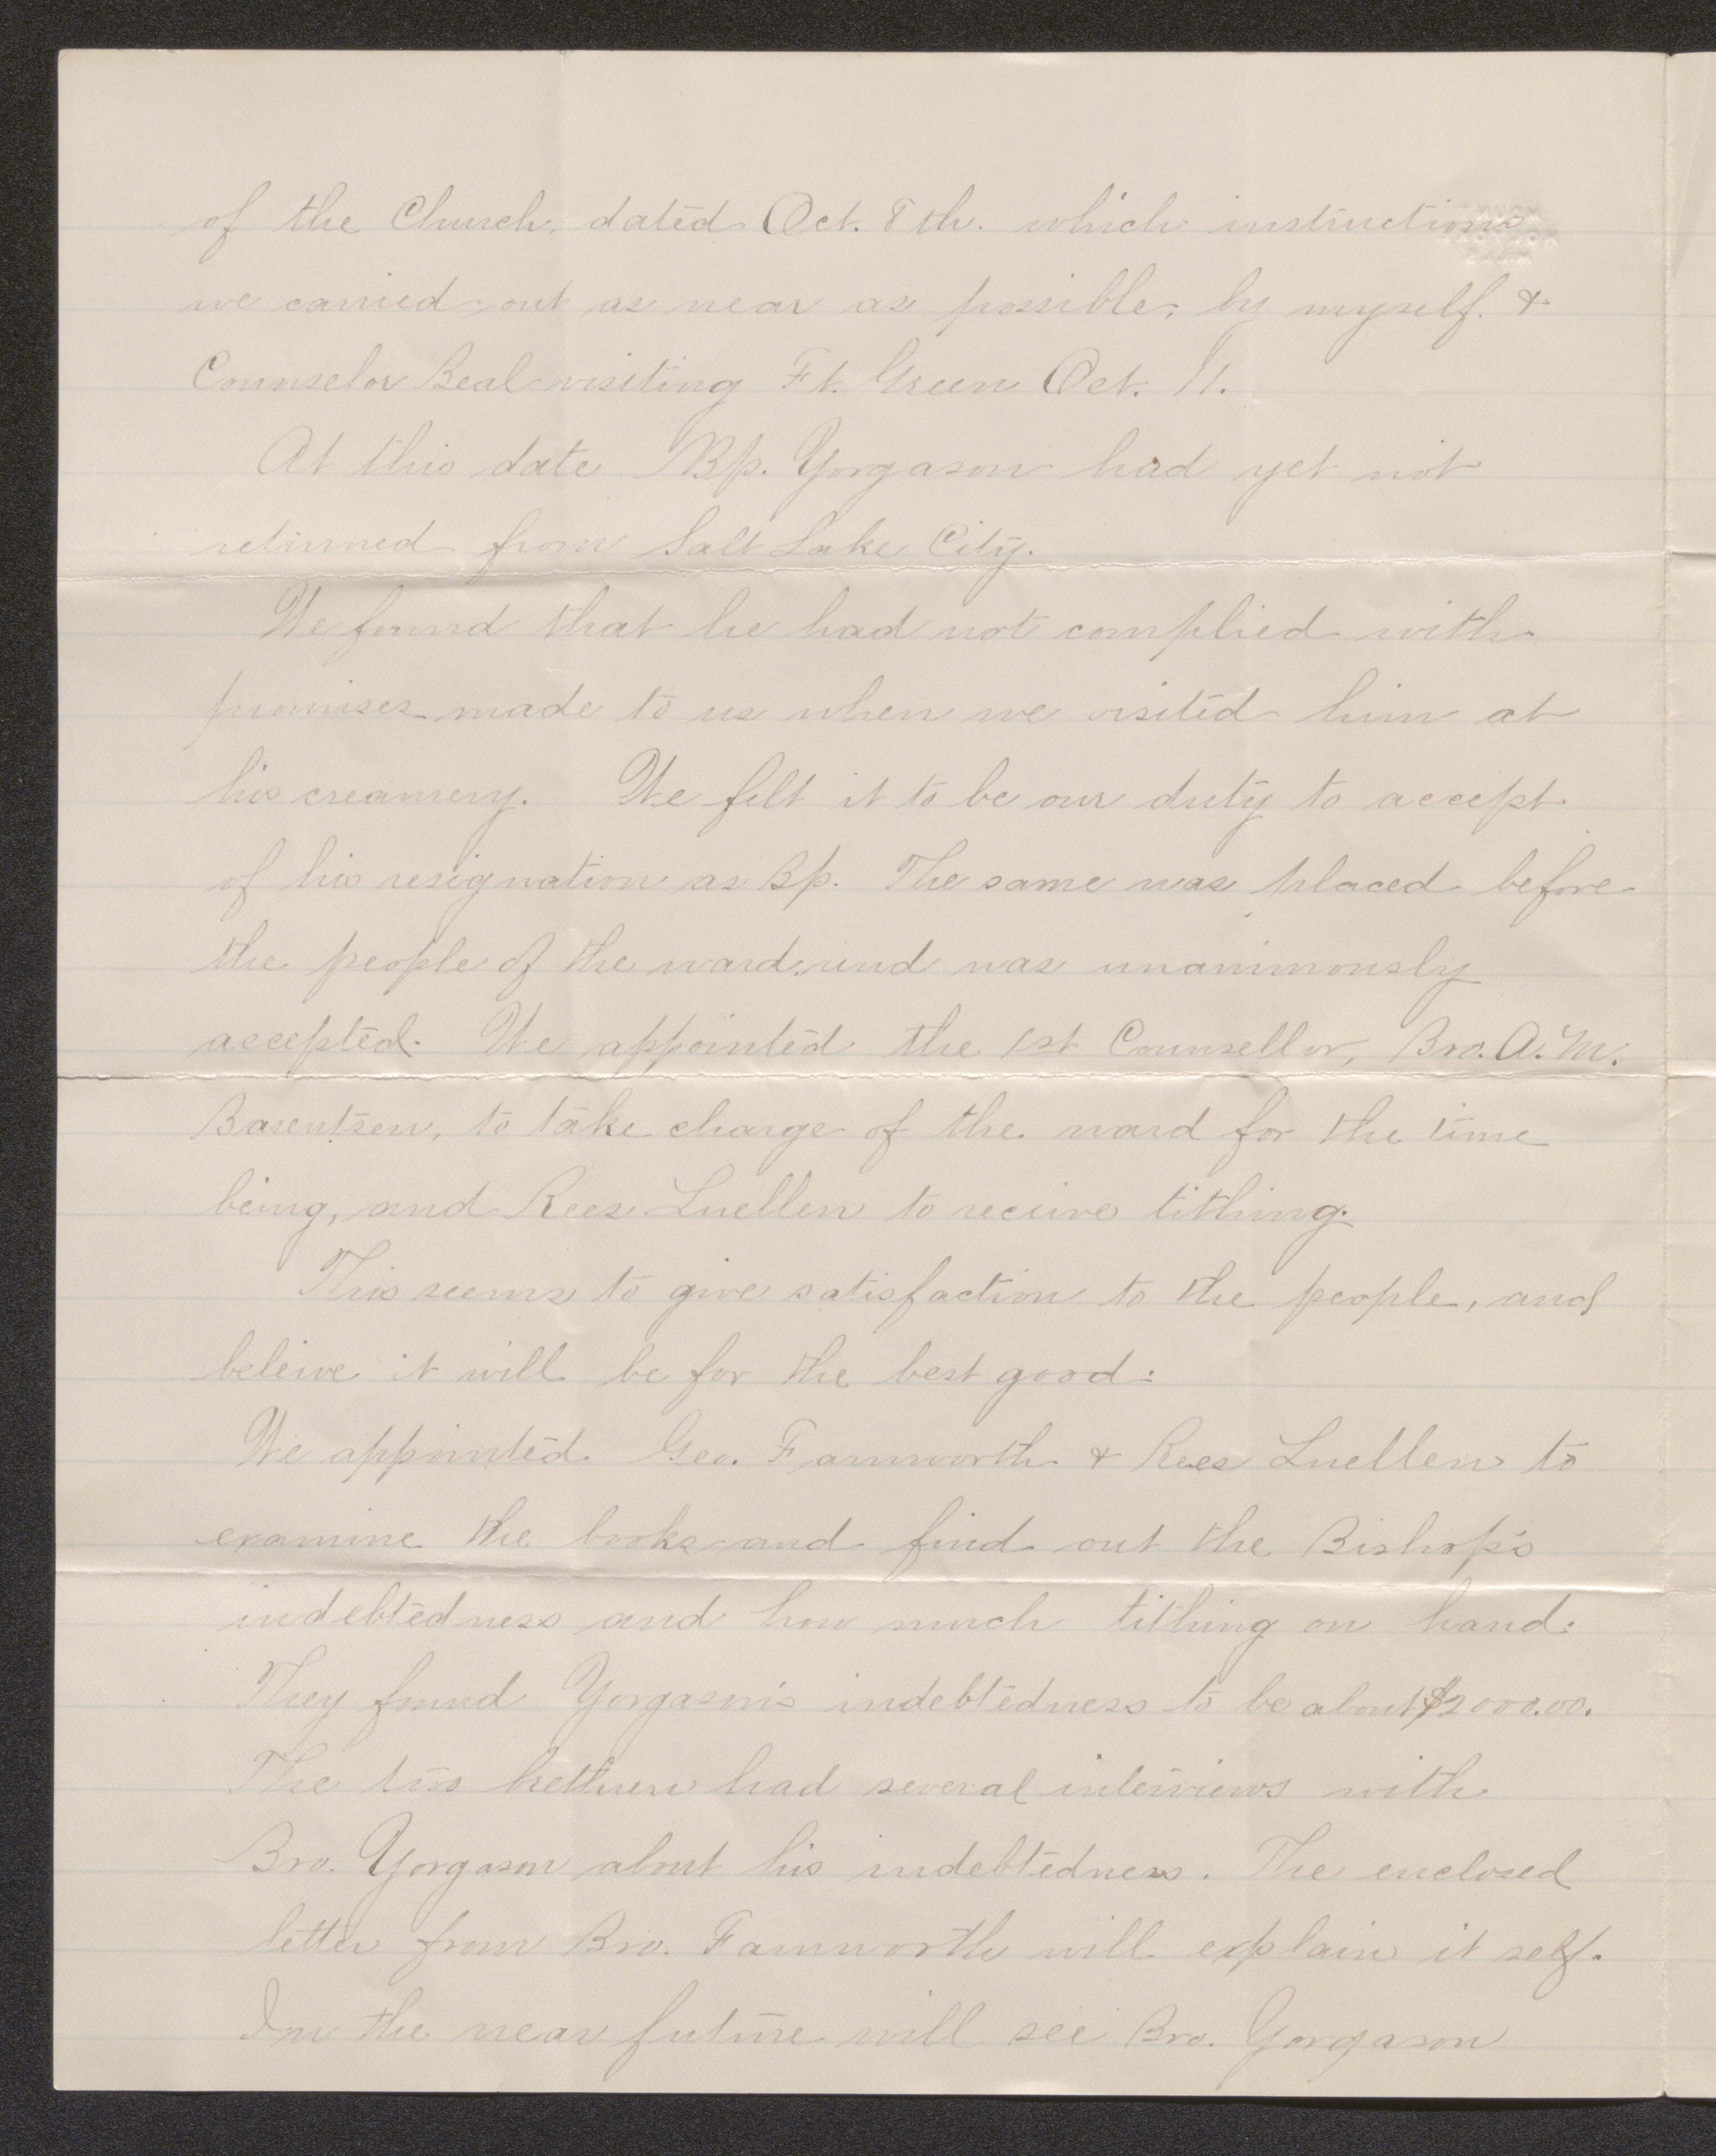 of the Church, dated Oct. 8th. which instructions
we carried out as near as possible, by myself. &
Counselor Beal visiting Ft. Green Oct. 11.
At this date Bp. Yorgason had yet not
returned from Salt Lake City.
We found that he had not complied with
promises made to us when we visited him at
his creamery. We felt it to be our duty to accept
of his resignation as Bp. The same was placed before
the people of the ward and was unanimously
accepted. We appointed the 1st Counsellor, Bro. A. M.
Barentsen, to take charge of the ward for the time
being, and Rees Luellen to receive tithing.
This seems to give satisfaction to the people, and
beleive it will be for the best good.
We appointed Geo. Farnworth & Rees Luellen to
examine the books and find out the Bishop's
indebtedness and how much tithing on hand.
They found Yorgason's indebtedness to be about $2000.00.
The two brethren had several interviews with
Bro. Yorgason about his indebtedness. The enclosed
letter from Bro. Farnworth will explain it self.
In the near future will see Bro. Yorgason